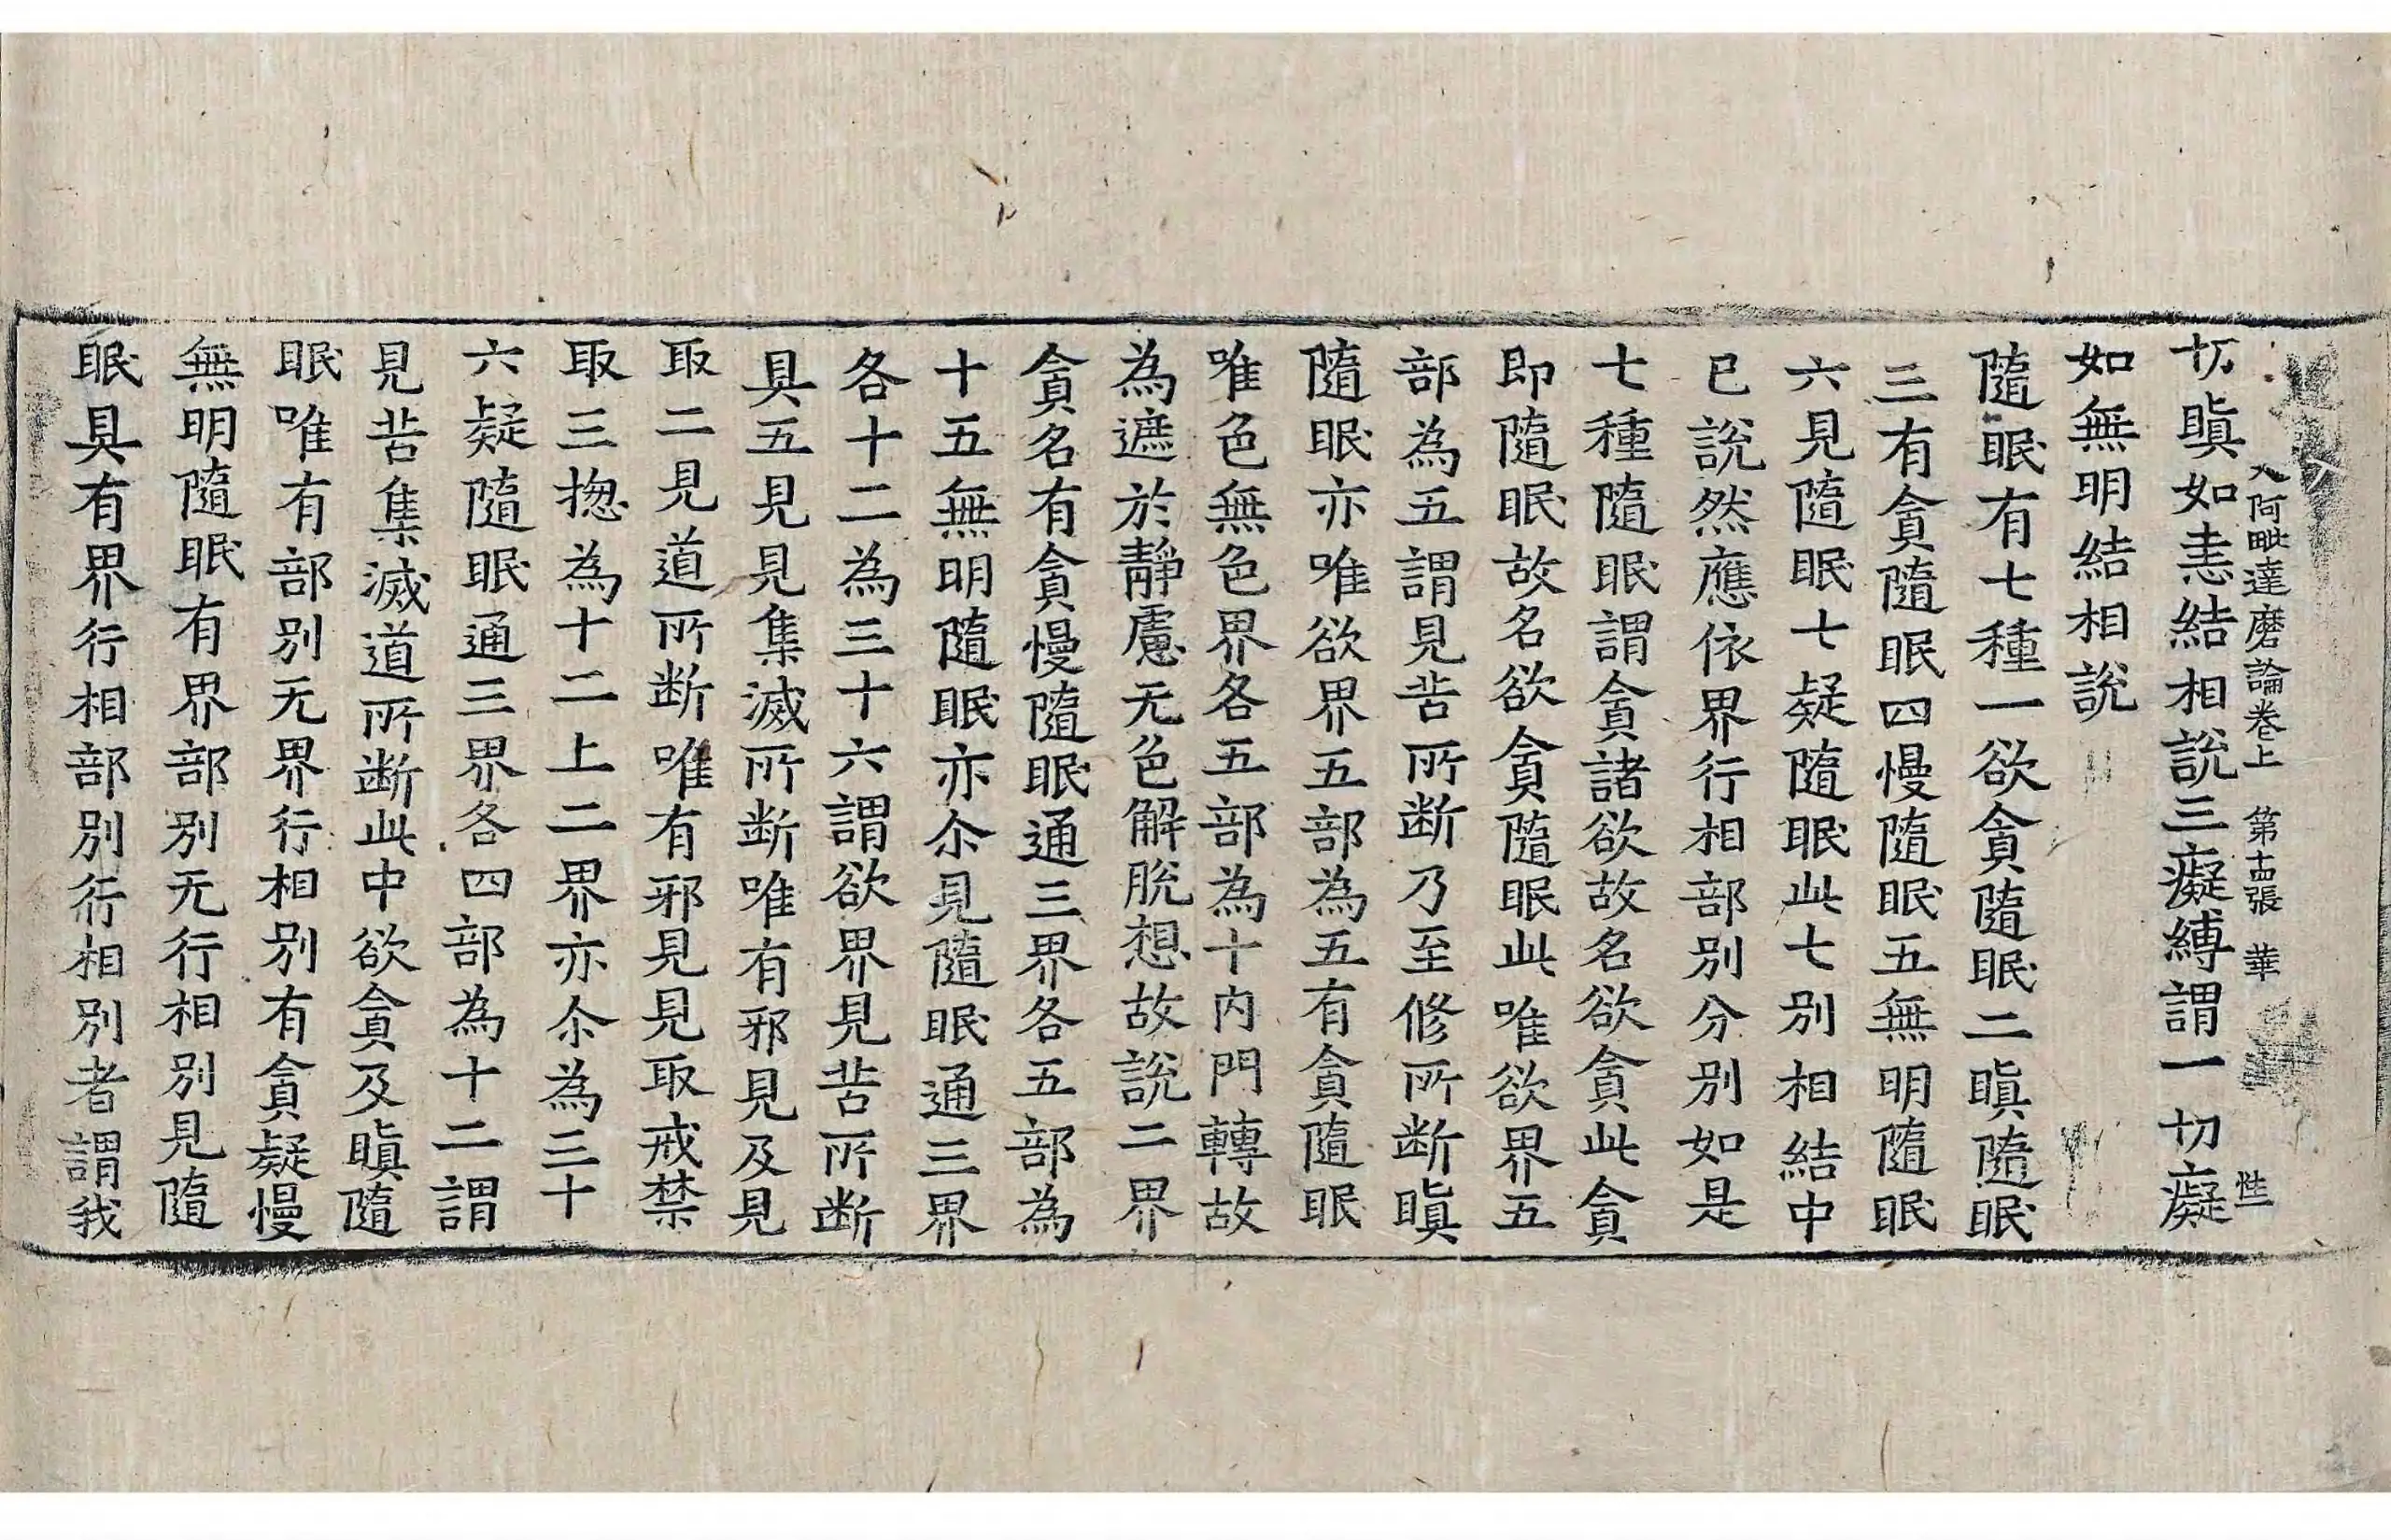 入阿毗達磨論卷上 第十四張 華 性
切瞋如恚結相說三癡縛謂一切癡
如無明結相說
隨眠有七種一欲貪隨眠二瞋隨眠
三有貪隨眠四慢隨眠五無明隨眠
六見隨眠七疑隨眠此七別相結中
已說然應依界行相部別分別如是
七種隨眠謂貪諸欲故名欲貪此貪
即隨眠故名欲貪隨眠此唯欲界五
部為五謂見苦所断乃至修所断瞋
隨眠亦唯欲界五部為五有貪隨眠
唯色無色界各五部為十內門轉故
為遮於靜慮无色解脫想故說二界
貪名有貪慢隨眠通三界各五部為
十五無明隨眠亦尒見隨眠通三界
各十二為三十六謂欲界見苦所断
具五見見集滅所断唯有邪見及見
取二見道所断唯有邪見見取戒禁
取三揔為十二上二界亦尒為三十
六疑隨眠通三界各四部為十二謂
見苦集滅道所断此中欲貪及瞋隨
眠唯有部別无界行相別有貪疑慢
無明隨眠有界部別无行相別見隨
眠具有界行相部別行相別者謂我